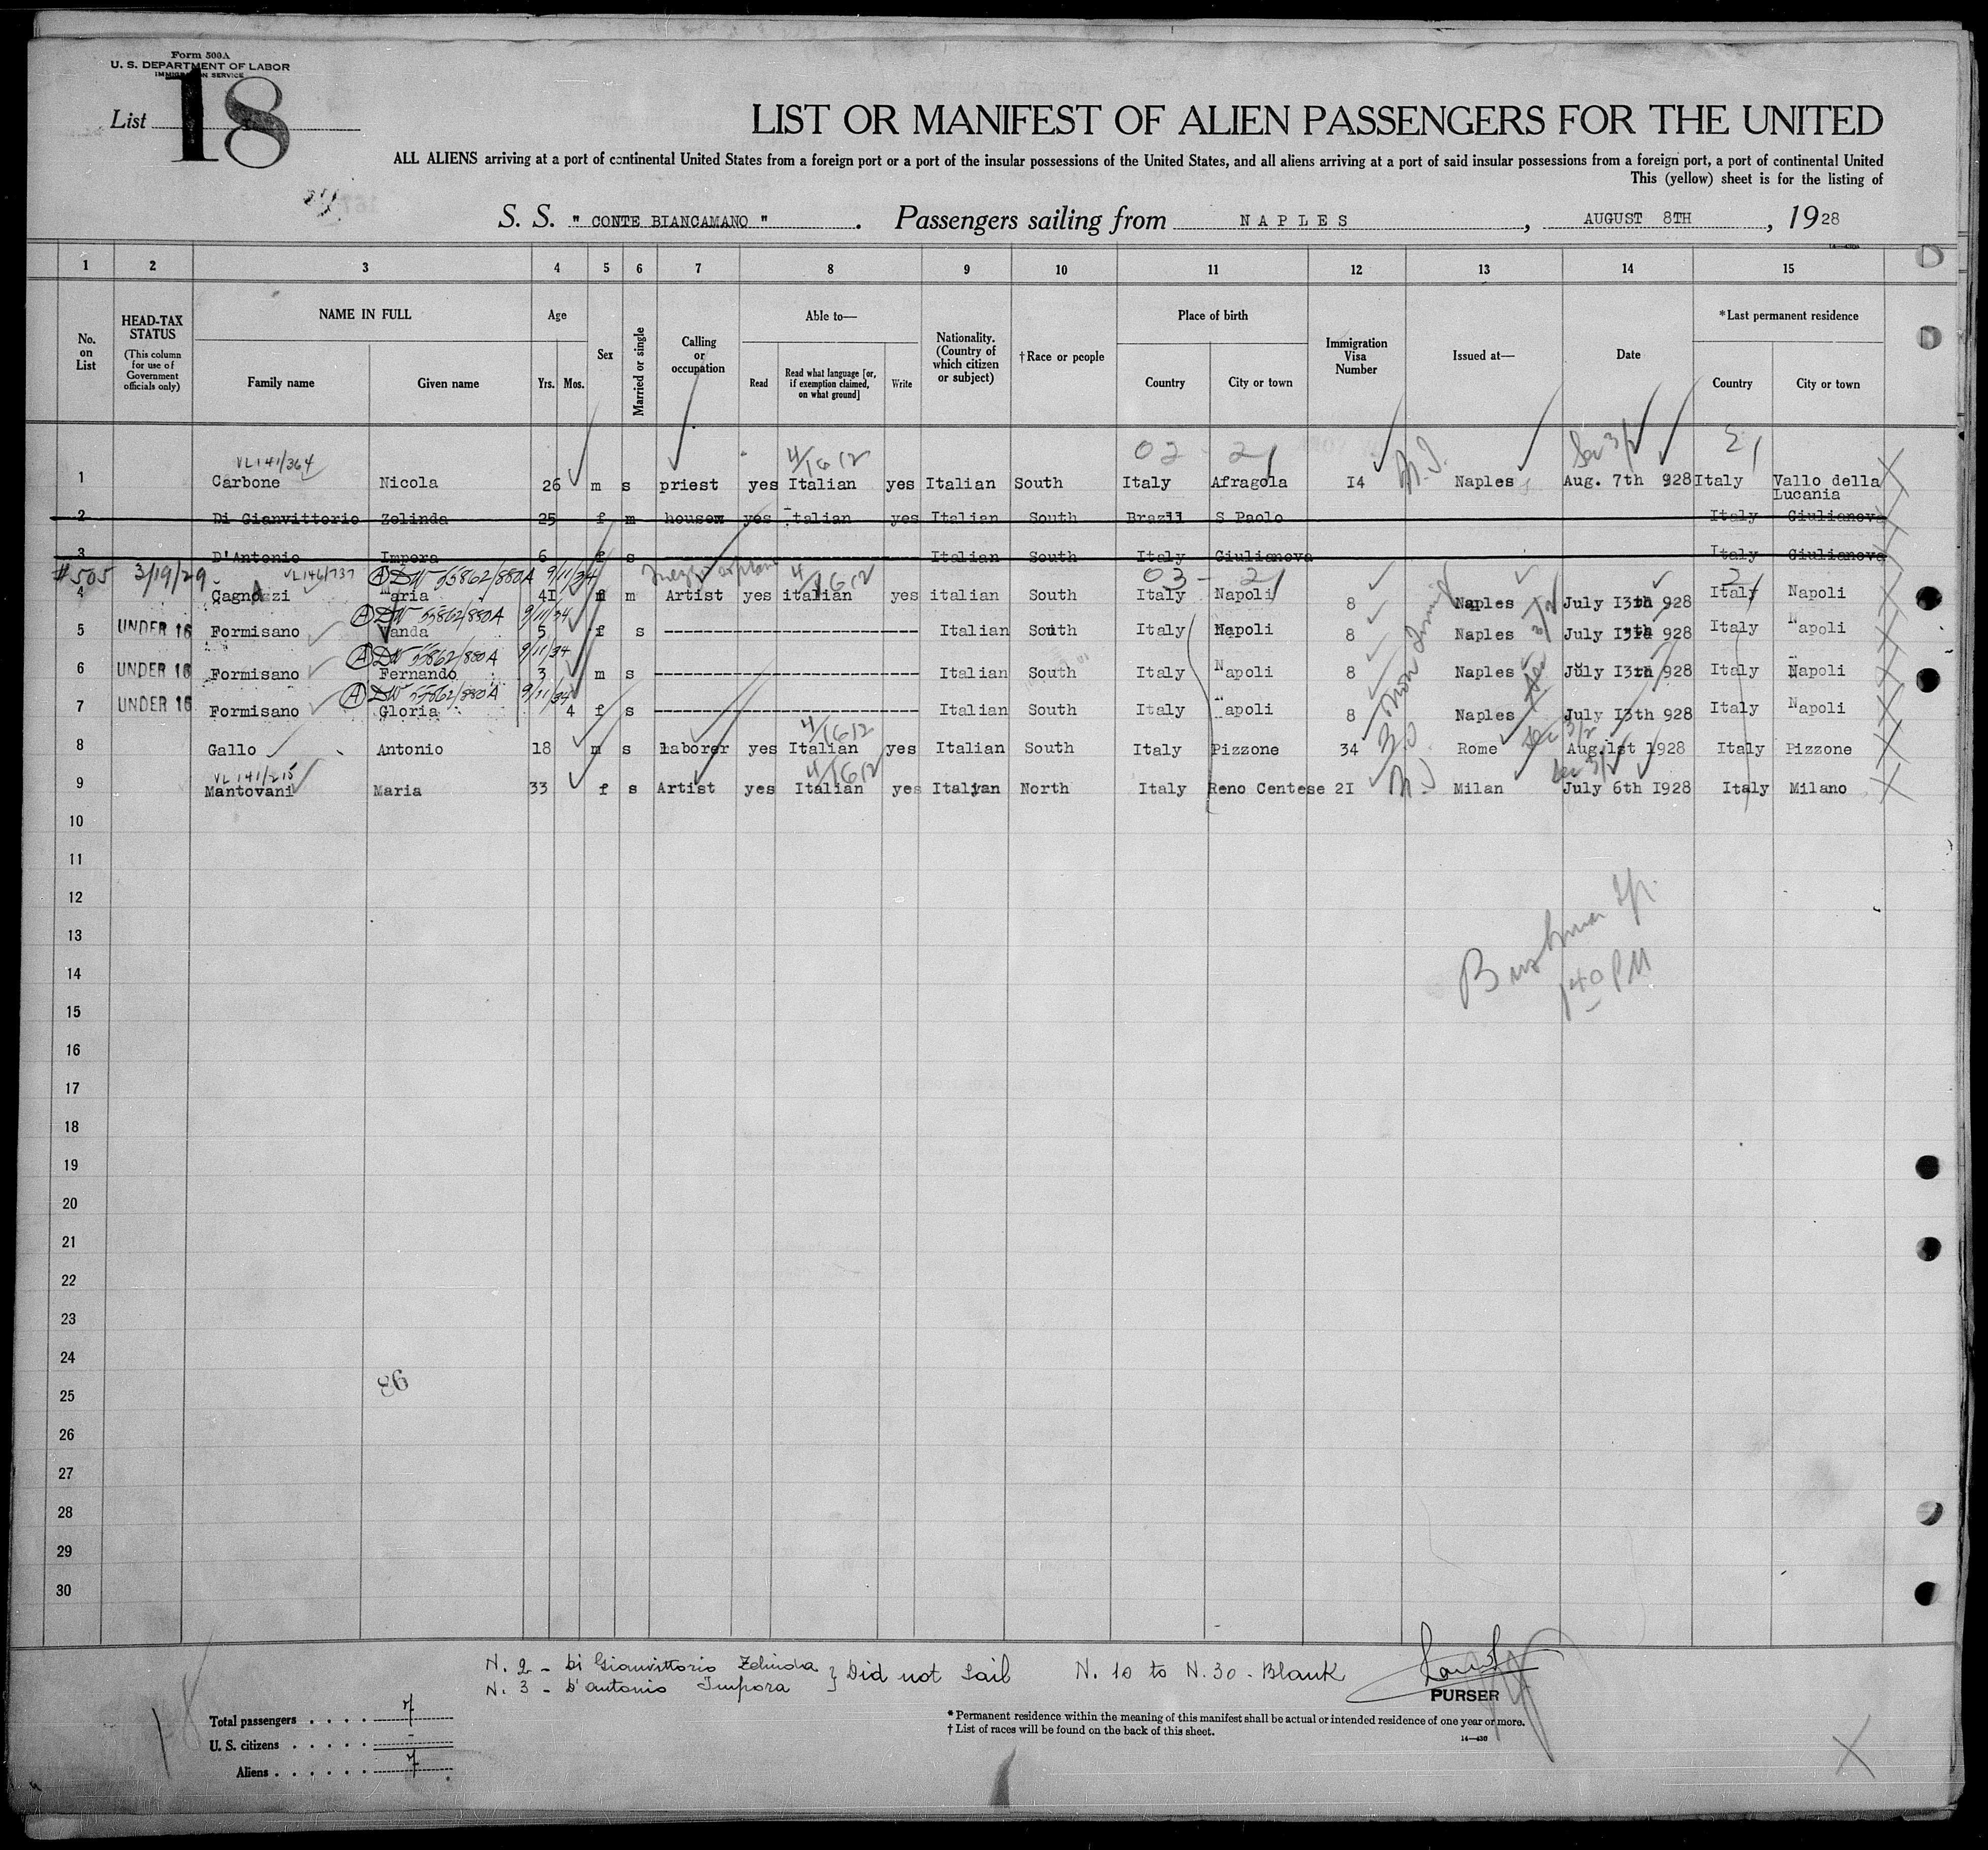 Form 500A
U. S. DEPARTMENT OF LABOR
IMMIGRATION SERVICE
List 18
LIST OR MANIFEST OF ALIEN PASSENGERS FOR THE UNITED
ALL ALIENS arriving at a port of continental United States from a foreign port or a port of the insular possessions of the United States, and all aliens arriving at a port of said insular possessions from a foreign port, a port of continental United
This (yellow) sheet is for the listing of
S. S. " CONTE BIANCAMANO ". Passengers sailing from NAPLES, AUGUST 8TH, 1928
1 2 3 4 5 6 7 8 9 10 11 12 13 14 15
No. on List
HEAD-TAX STATUS
(This column for use of Government officials only)
NAME IN FULL
Family name
Given name
Age
Yrs. Mos.
Sex
Married or single
Calling or occupation
Able to—
Read
Read what language [or, if exemption claimed, on what ground]
Write
Nationality. (Country of which citizen or subject)
†Race or people
Place of birth
Country
City or town
Immigration Visa Number
Issued at—
Date
*Last permanent residence
Country
City or town
VL 141/364 4/1612 02 - 21
1 Carbone Nicola 26 m s priest yes Italian yes Italian South Italy Afragola 14 Naples Aug. 7th 928 Italy Vallo della Lucania
2 Di Gianvittorio Zelinda 25 f m housew yes Italian yes Italian South Brazil S Paolo Italy Giulianova
3 D'Antonio Impera 6 f s Italian South Italy Giulianova Italy Giulianova
#505 3/19/29 VL146/737 A DW 55862/880A 9/11/34 4/1612 03 - 21
4 Cagnazzi Maria 41 f m Artist yes italian yes italian South Italy Napoli 8 Naples July 13th 928 Italy Napoli
A DW 55862/880A 9/11/34
5 UNDER 16 Formisano Vanda 5 f s Italian South Italy Napoli 8 Naples July 13th 928 Italy Napoli
A DW 55862/880A 9/11/34
6 UNDER 16 Formisano Fernando 3 m s Italian South Italy Napoli 8 Naples July 13th 928 Italy Napoli
A DW 55862/880A 9/11/34
7 UNDER 16 Formisano Gloria 4 f s Italian South Italy Napoli 8 Naples July 13th 928 Italy Napoli
4/1612
8 Gallo Antonio 18 m s laborer yes Italian yes Italian South Italy Pizzone 34 Rome Aug. 1st 1928 Italy Pizzone
VL 141/215 4/1612
9 Mantovani Maria 33 f s Artist yes Italian yes Italyan North Italy Reno Centese 21 Milan July 6th 1928 Italy Milano
10
11
12
13
14
15
16
17
18
19
20
21
22
23
24
25
26
27
28
29
30
140 PM
86
N. 2 - Di Gianvittorio Zelinda } Did not sail N. 10 to N. 30 - Blank
N. 3 - D'antonio Impora
PURSER
Total passengers . . . . 7
U. S. citizens . . . . . -
Aliens . . . . . . 7
* Permanent residence within the meaning of this manifest shall be actual or intended residence of one year or more.
† List of races will be found on the back of this sheet.
14—430